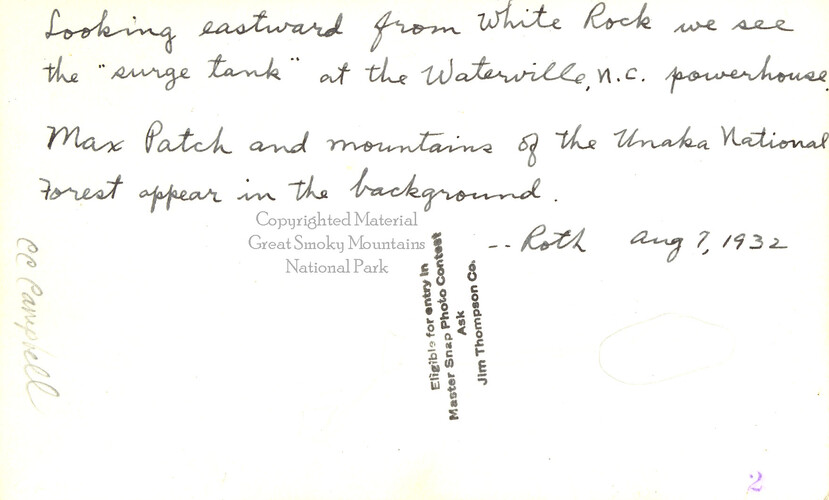 Looking eastward from White Rock we see
the "surge tank" at the Waterville, N.C. powerhouse.
Max Patch and mountains of the Unaka National
Forest appear in the background.
-- Roth Aug 7, 1932
Copyrighted Material
Great Smoky Mountains
National Park
CC Campbell
Eligible for entry in
Master Snap Photo Contest
Ask
Jim Thompson Co.
2